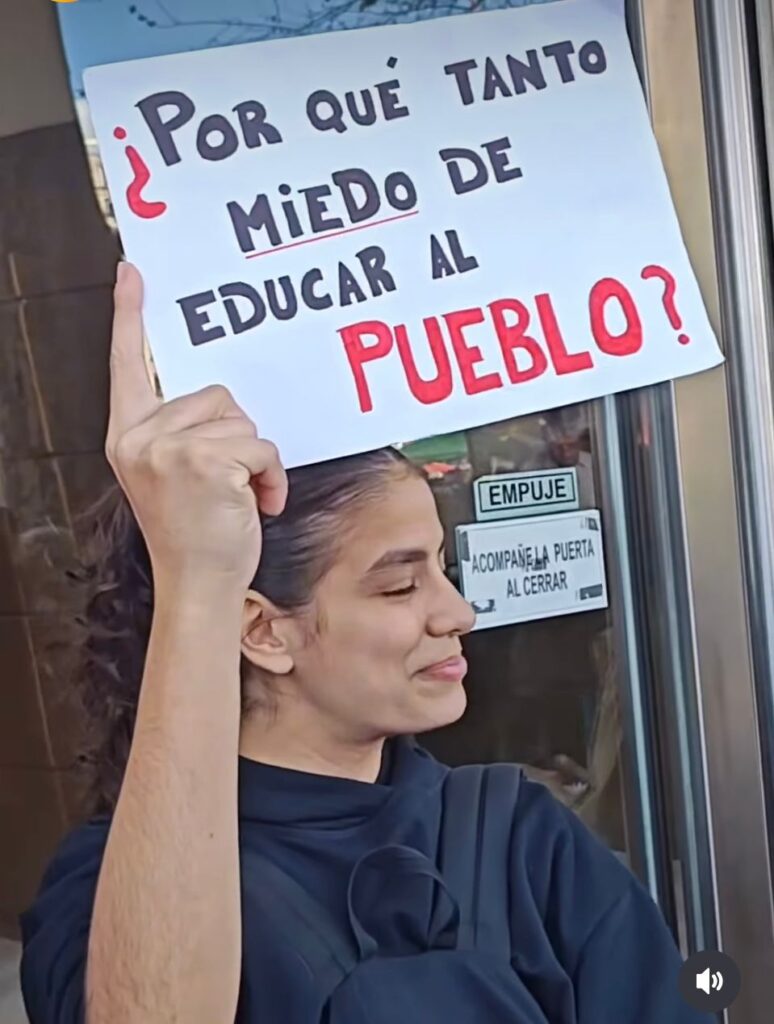 ¿POR QUÉ TANTO
MiEDO DE
EDUCAR AL
PUEBLO?
EMPUJE
ACOMPAÑE LA PUERTA
AL CERRAR